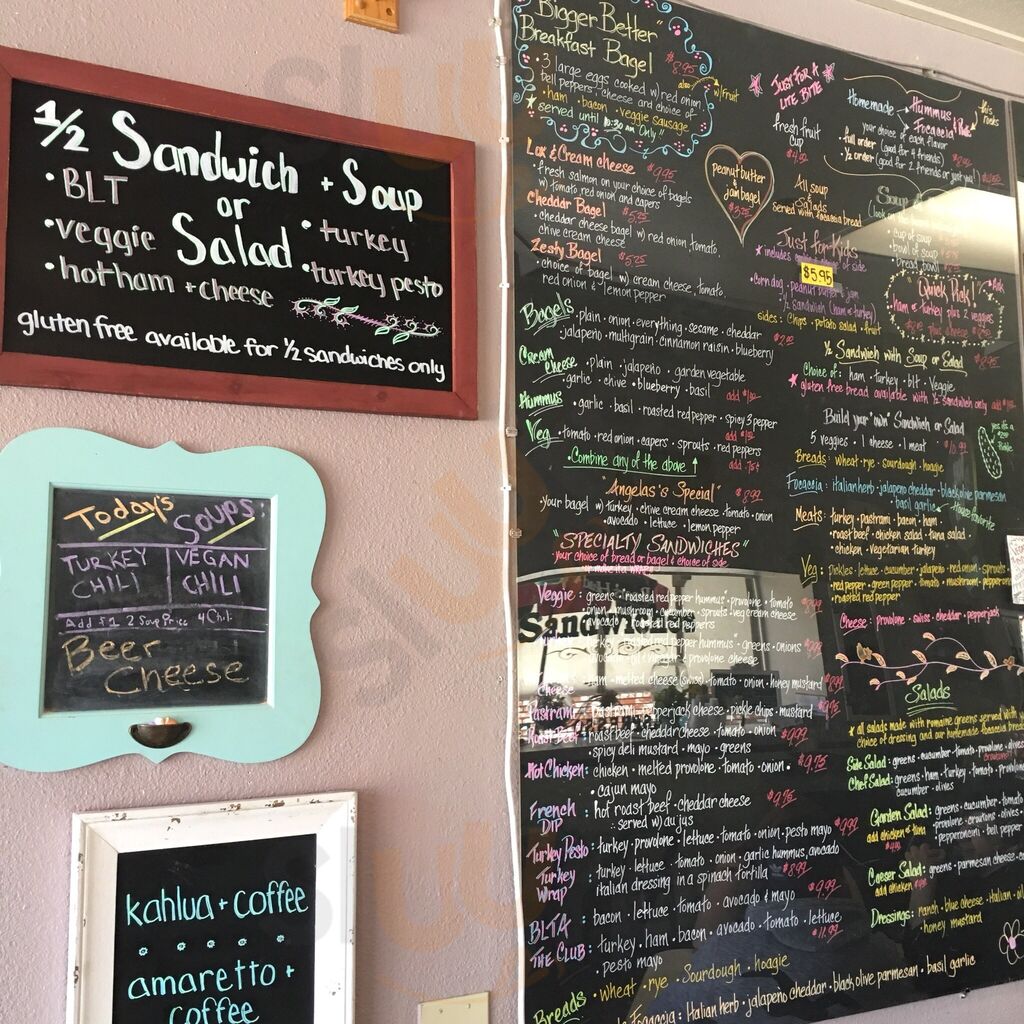 1/2 Sandwich + Soup
or
Salad
• BLT
• veggie
• hot ham + cheese
• turkey
• turkey pesto
gluten free available for 1/2 sandwiches only
Today's
Soups:
TURKEY CHILI
VEGAN CHILI
Beer
Cheese
kahlua + coffee
amaretto +
coffee
Bigger Better
Breakfast Bagel
$8.95
• 3 large eggs cooked w/ red onion
bell peppers, cheese and choice of
• ham • bacon • veggie sausage
also w/ fruit
served until 10:30 am "Only"
Lox & Cream cheese $9.95
• fresh salmon on your choice of bagels
w/ tomato red onion and capers
Cheddar Bagel $5.25
• cheddar cheese bagel w/ red onion, tomato,
chive cream cheese
Zesty Bagel $5.25
• choice of bagel w/ cream cheese, tomato,
red onion & lemon pepper
peanut butter
& jam bagel
Bagels • plain • onion • everything • sesame • cheddar
• jalapeño • multigrain • cinnamon raisin • blueberry
Cream Cheese • plain • jalapeño • garden vegetable
• garlic • chive • blueberry • basil
Hummus • garlic • basil • roasted red pepper • spicy 3 pepper
Veg • tomato • red onion • capers • sprouts • red peppers
• Combine any of the above ↑ add .75¢
"Angelas's Special" $8.99
your bagel w/ turkey, chive cream cheese, tomato • onion
avocado • lettuce • lemon pepper
"SPECIALTY SANDWICHES"
your choice of bread or bagel & choice of side
Veggie: greens • "roasted red pepper hummus" • provolone • tomato
ham • melted cheese (swiss) • tomato • onion • honey mustard
Pastrami: pastrami • pepperjack cheese • pickle chips • mustard
Roast Beef: roast beef • cheddar cheese • tomato • onion $9.99
spicy deli mustard • mayo • greens
Hot Chicken: chicken • melted provolone • tomato • onion • $9.75
cajun mayo
French DIP: hot roast beef • cheddar cheese $9.95
served w/ au jus
Turkey Pesto: turkey • provolone • lettuce • tomato • onion • pesto mayo $9.99
Turkey Wrap: turkey • lettuce • tomato • onion • garlic hummus, avocado
italian dressing in a spinach tortilla $8.99
BLTA: bacon • lettuce • tomato • avocado & mayo $9.99
THE CLUB: turkey • ham • bacon • avocado • tomato • lettuce $11.99
• pesto mayo
Breads • wheat • rye • Sourdough • hoagie
Focaccia: Italian herb • jalapeño cheddar • black olive parmesan • basil garlic
JUST FOR A
LITE BITE
fresh fruit
cup
All soup
& Salads
served with focaccia bread
Homemade Hummus &
Focaccia
your choice of each flavor
full order (good for 4 friends)
1/2 order (good for 2 friends or just you!)
cup of soup
bowl of soup
bread bowl
Just for Kids
$5.95
corn dog • peanut butter & jam
1/2 sandwich (ham or turkey)
sides: chips • potato salad • fruit
"Quick Pick"
ham or turkey plus 2 veggies
1/2 Sandwich with Soup or Salad $8.95
Choice of: ham • turkey • blt • Veggie
gluten free bread available with 1/2 sandwich only
Build your "own" Sandwich or Salad
5 veggies • 1 cheese • 1 meat
Breads: wheat • rye • sourdough • hoagie
Focaccia: italian herb • jalapeño cheddar • black olive parmesan
• basil garlic ← House favorite
Meats: turkey • pastrami • bacon • ham
• roast beef • chicken salad • tuna salad •
• chicken • vegetarian turkey
Veg: pickles • lettuce • cucumber • jalapeño • red onion • sprouts
red pepper • green pepper • tomato • mushroom • pepperoncini
• roasted red pepper
Cheese: provolone • swiss • cheddar • pepperjack
Salads
* all salads made with romaine greens served with
choice of dressing and our homemade focaccia bread
Side Salad: greens • cucumber • tomato • provolone • olives
Chef Salad: greens • ham • turkey • tomato • provolone
cucumber • olives
Garden Salad: greens • cucumber • tomato
add chicken or tuna provolone • croutons • olives
pepperoncini • bell pepper
Caeser Salad: greens • parmesan cheese
add chicken
Dressings: ranch • blue cheese • italian • oil
honey mustard